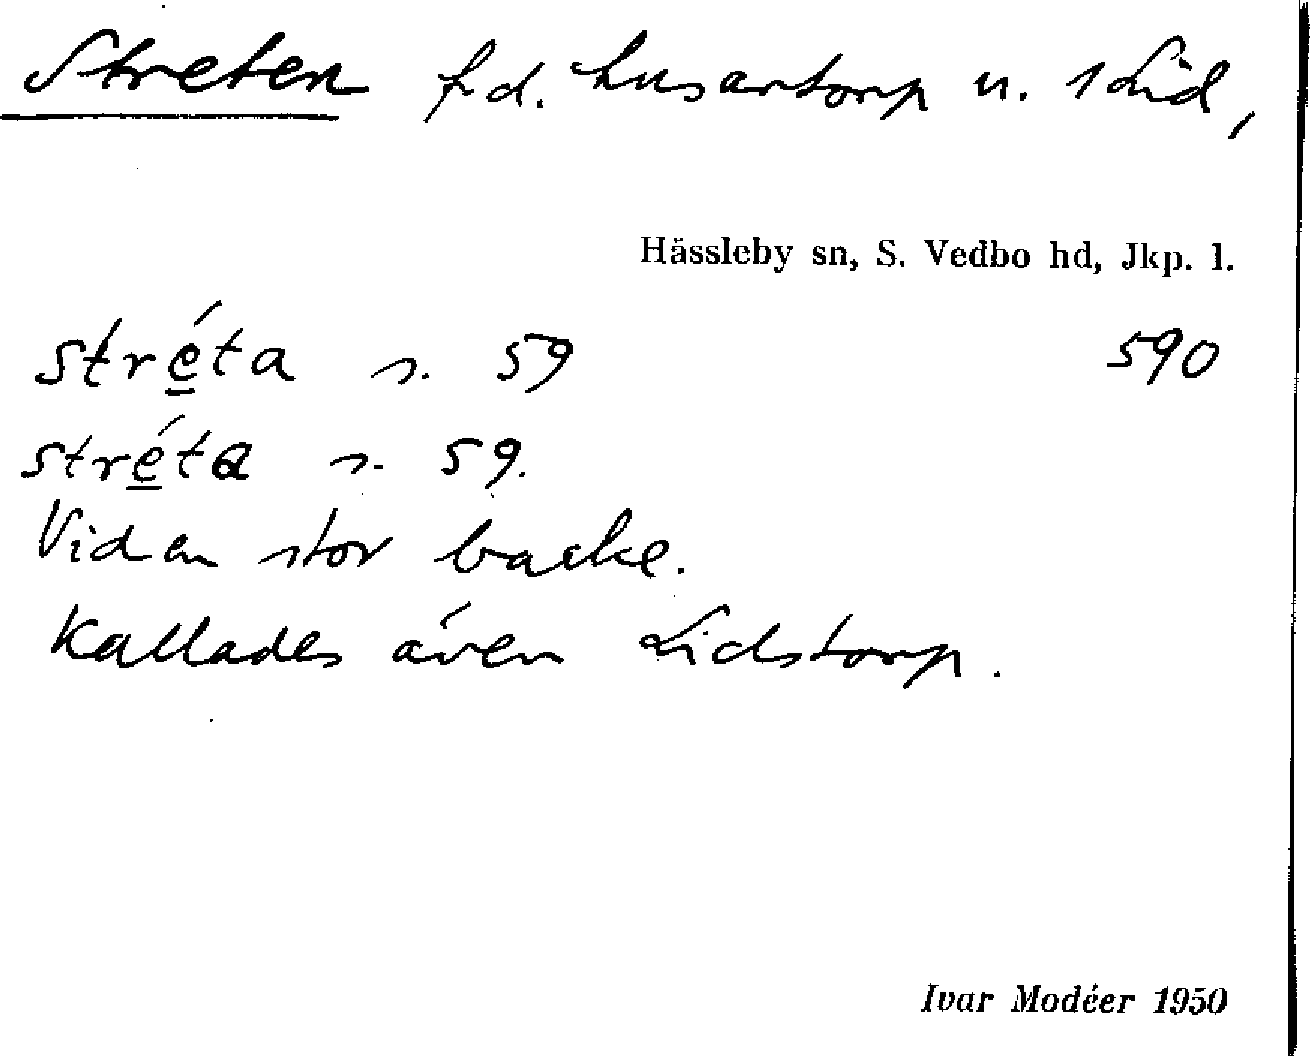 Streten f.d. husartorp u. 1 Lid,
Hässleby sn, S. Vedbo hd, Jkp. l.
stré̲ta s. 59 590
stré̲ta s. 59.
Vid en stor backe.
Kallades även Lidstorp.
Ivar Modéer 1950